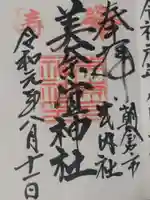 奉拝
朝倉市
式内社
美奈宜神社
令和元年八月十一日